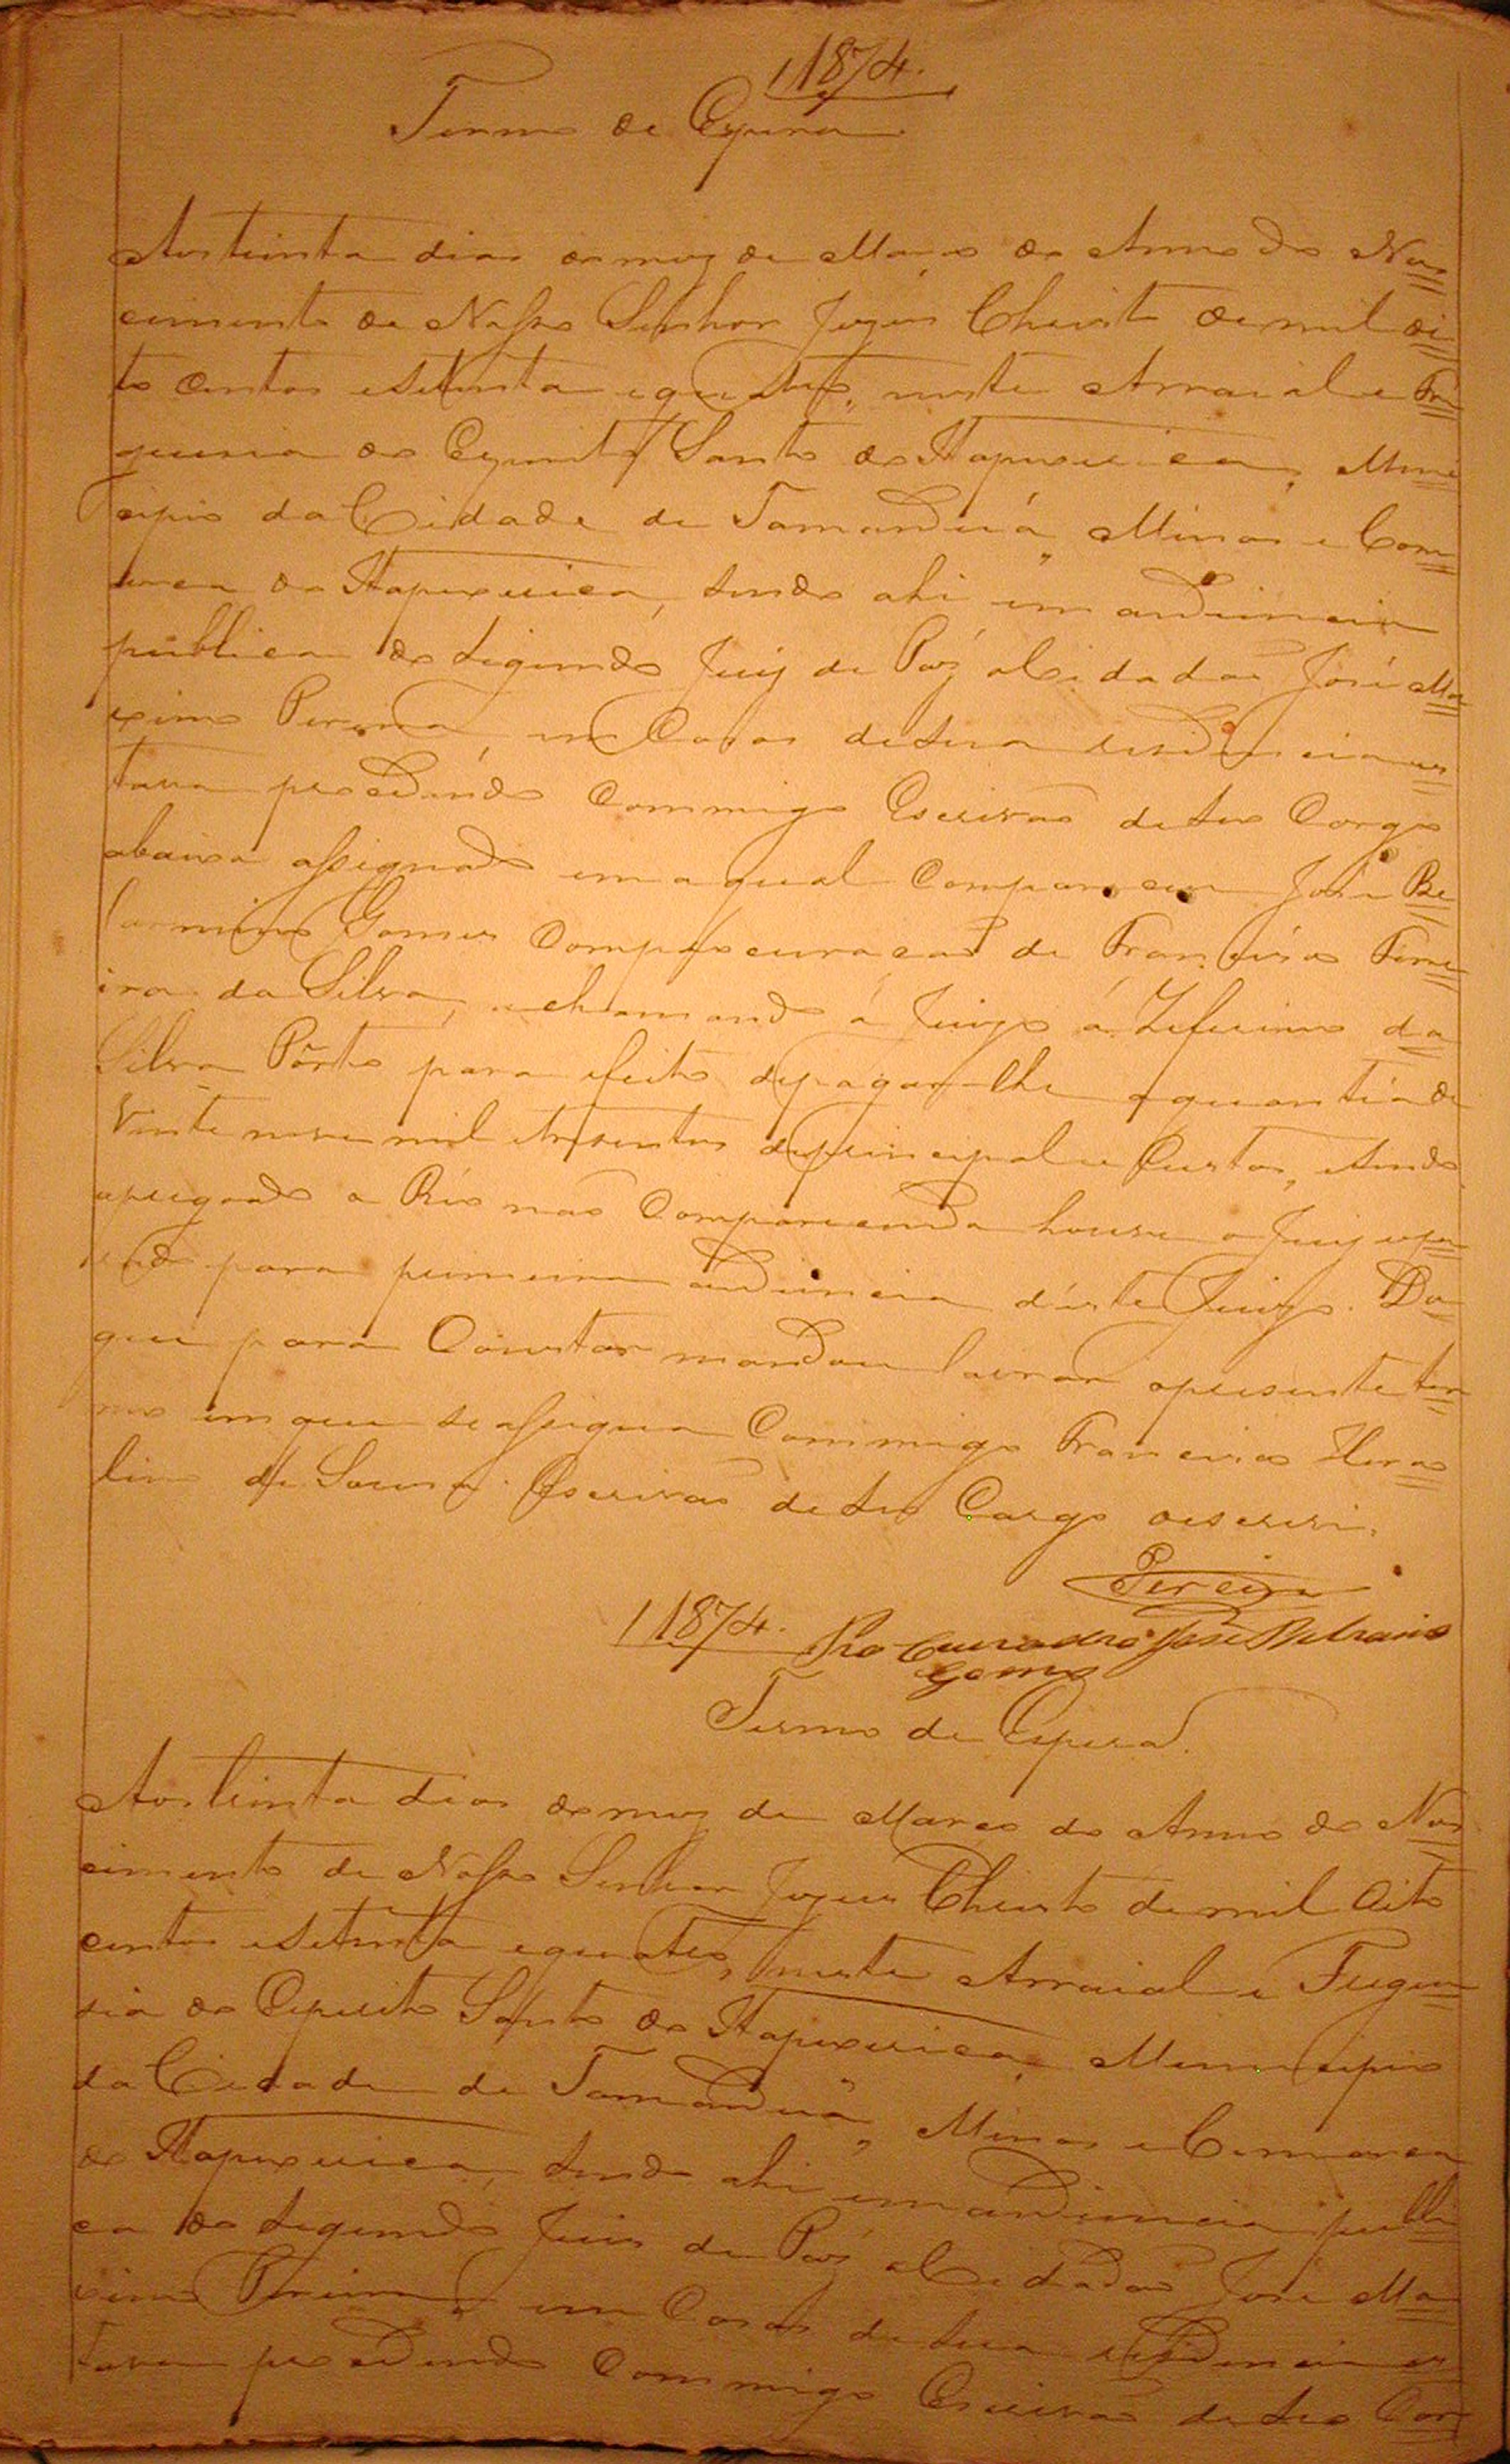 1874.
Termo de Espera.
Aos trinta dias do mez de Março do Anno do Nas=
cimento de Nosso Senhor Jezus Christo de mil oi=
to centos e setenta e quatro, neste Arraial e Fre=
guesia do Espirito Santo do Itapecerica, Muni=
cipio da Cidade de Tamanduá, Minas e Com=
arca do Itapecerica, sendo ahi em audiencia
publica do segundo Juiz de Paz o Cidadão José Ma=
ximo Pereira, em Casas de sua residencia es=
tava procedendo Commigo Escrivão de seo Cargo
abaixo assignado em a qual Compareceu José Be=
larmino Gomes Com procuracão de Francisco Ferre=
ira da Silva, e chamando á Juizo á Zeferino da
Silva Pôrto para efeito de pagar-lhe a quantia de
Vinte nove mil tresentos de principal e Custas, e sendo
apregoado o Réo não Comparecendo houve o Juiz espe=
rado para primeira audiencia d'este Juizo. Do=
que para Constar mandou lavrar o presente ter=
mo em que se assigna Commigo Francisco Heras=
lino de Souza Escrivão de seo Cargo o escrevi.
Pereira
1874. Procurador José Belramino
Gomes
Termo de Espera.
Aos trinta dias do mez de Marco do Anno do Nas=
cimento de Nosso Senhor Jezus Christo de mil Oito
centos e setenta e quatro, neste Arraial e Fregue=
sia do Espirito Santo do Itapecerica, Municipio
da Cidade de Tamanduá, Minas e Commarca
do Itapecerica, sendo ahi em audiencia publi=
ca do segundo Juis de Paz o Cidadão José Ma=
ximo Pereira, em Casas de sua residencia es=
tava procedendo Commigo Escrivão de seo Car=